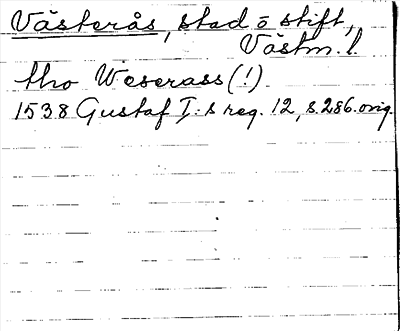 Västerås, stad o stift,
Västm. l.
tho Weserass (!).
1538 Gustaf I:s reg. 12, s. 286. orig.